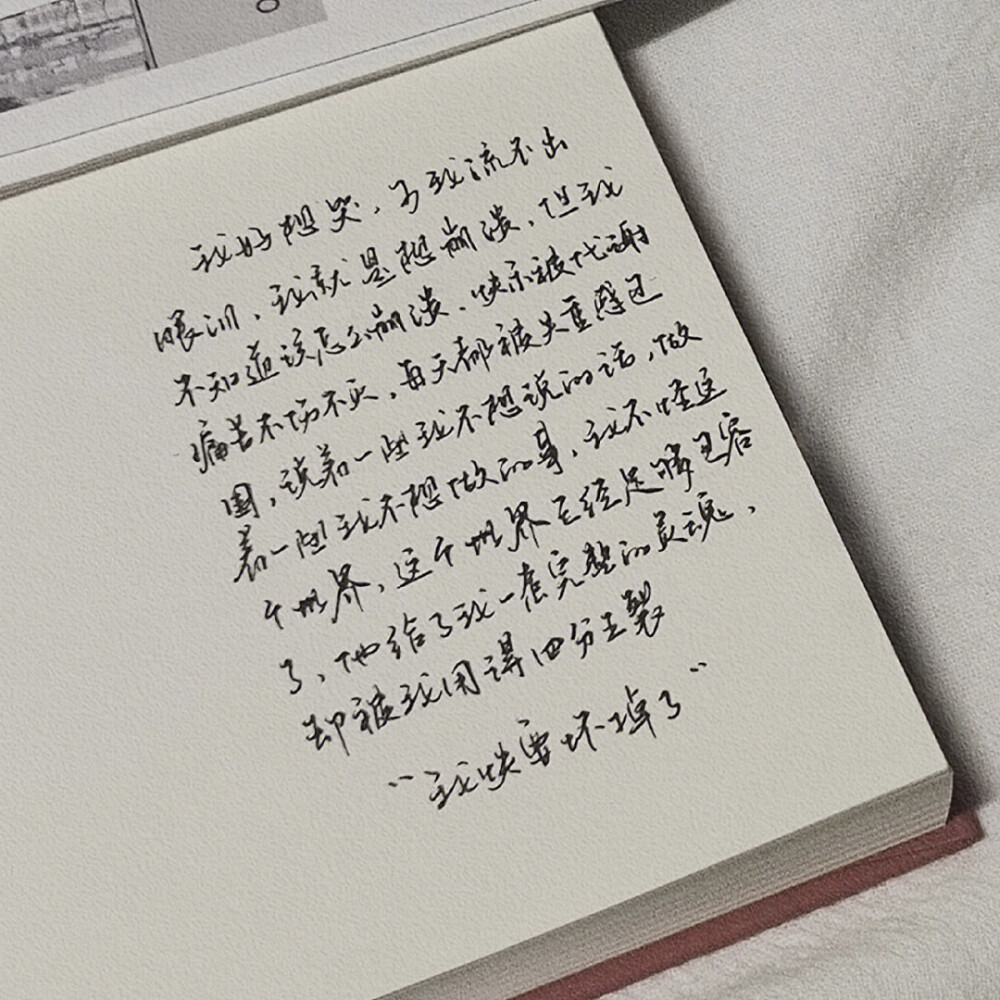 我好想哭,可我流不出
眼泪,我就是想崩溃,但我
不知道该怎么崩溃,快乐被代谢
痛苦不伤不灭,每天都被失重感包
围,说着一些我不想说的话,做
着一些我不想做的事,我不怪这
个世界,这个世界已经足够包容
了,他给了我一套完整的灵魂,
却被我用得四分五裂
“我快要坏掉了”